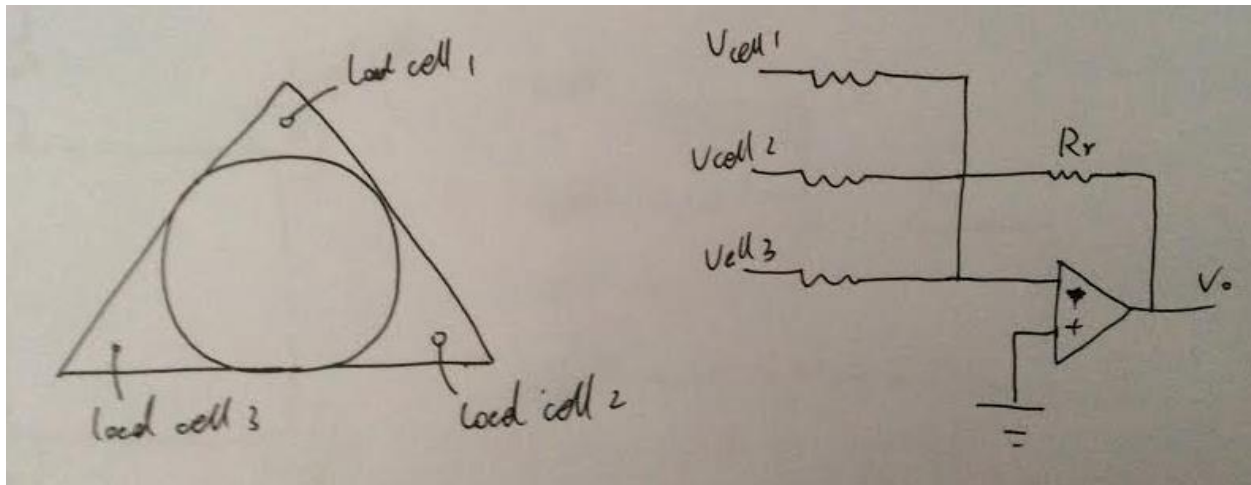 Load cell 1
Load cell 2
load cell 3
Vcell 1
Vcell 2
Vcell 3
Rr
+
Vo